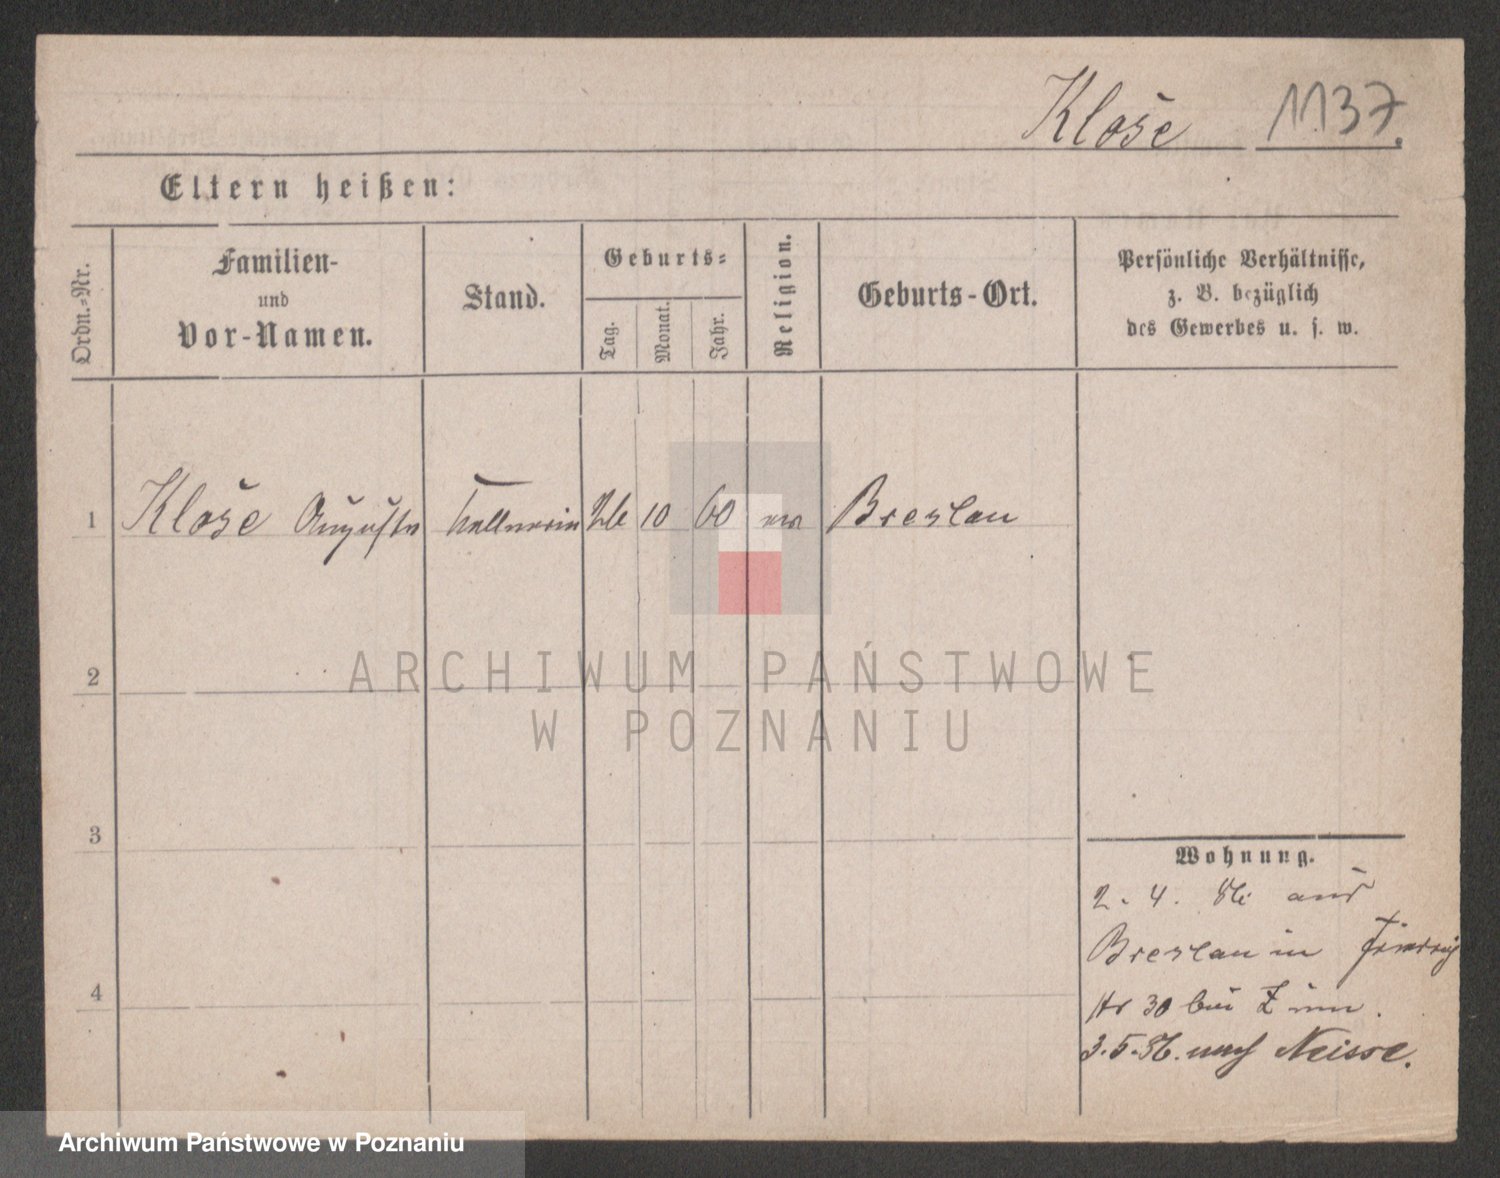 Klose 1137.
Eltern heißen:
Ordn.-Nr.
Familien-
und
Vor-Namen.
Stand.
Geburts-
Tag.
Monat.
Jahr.
Religion.
Geburts-Ort.
Persönliche Verhältnisse,
z. B. bezüglich
des Gewerbes u. s. w.
1 Klose Auguste Kellnerin 10 60 ev Breslau
2
3
4
Wohnung.
2. 4. 86 aus
Breslau in
30 bei
3.5.86. nach Neisse.
ARCHIWUM PAŃSTWOWE
W POZNANIU
Archiwum Państwowe w Poznaniu